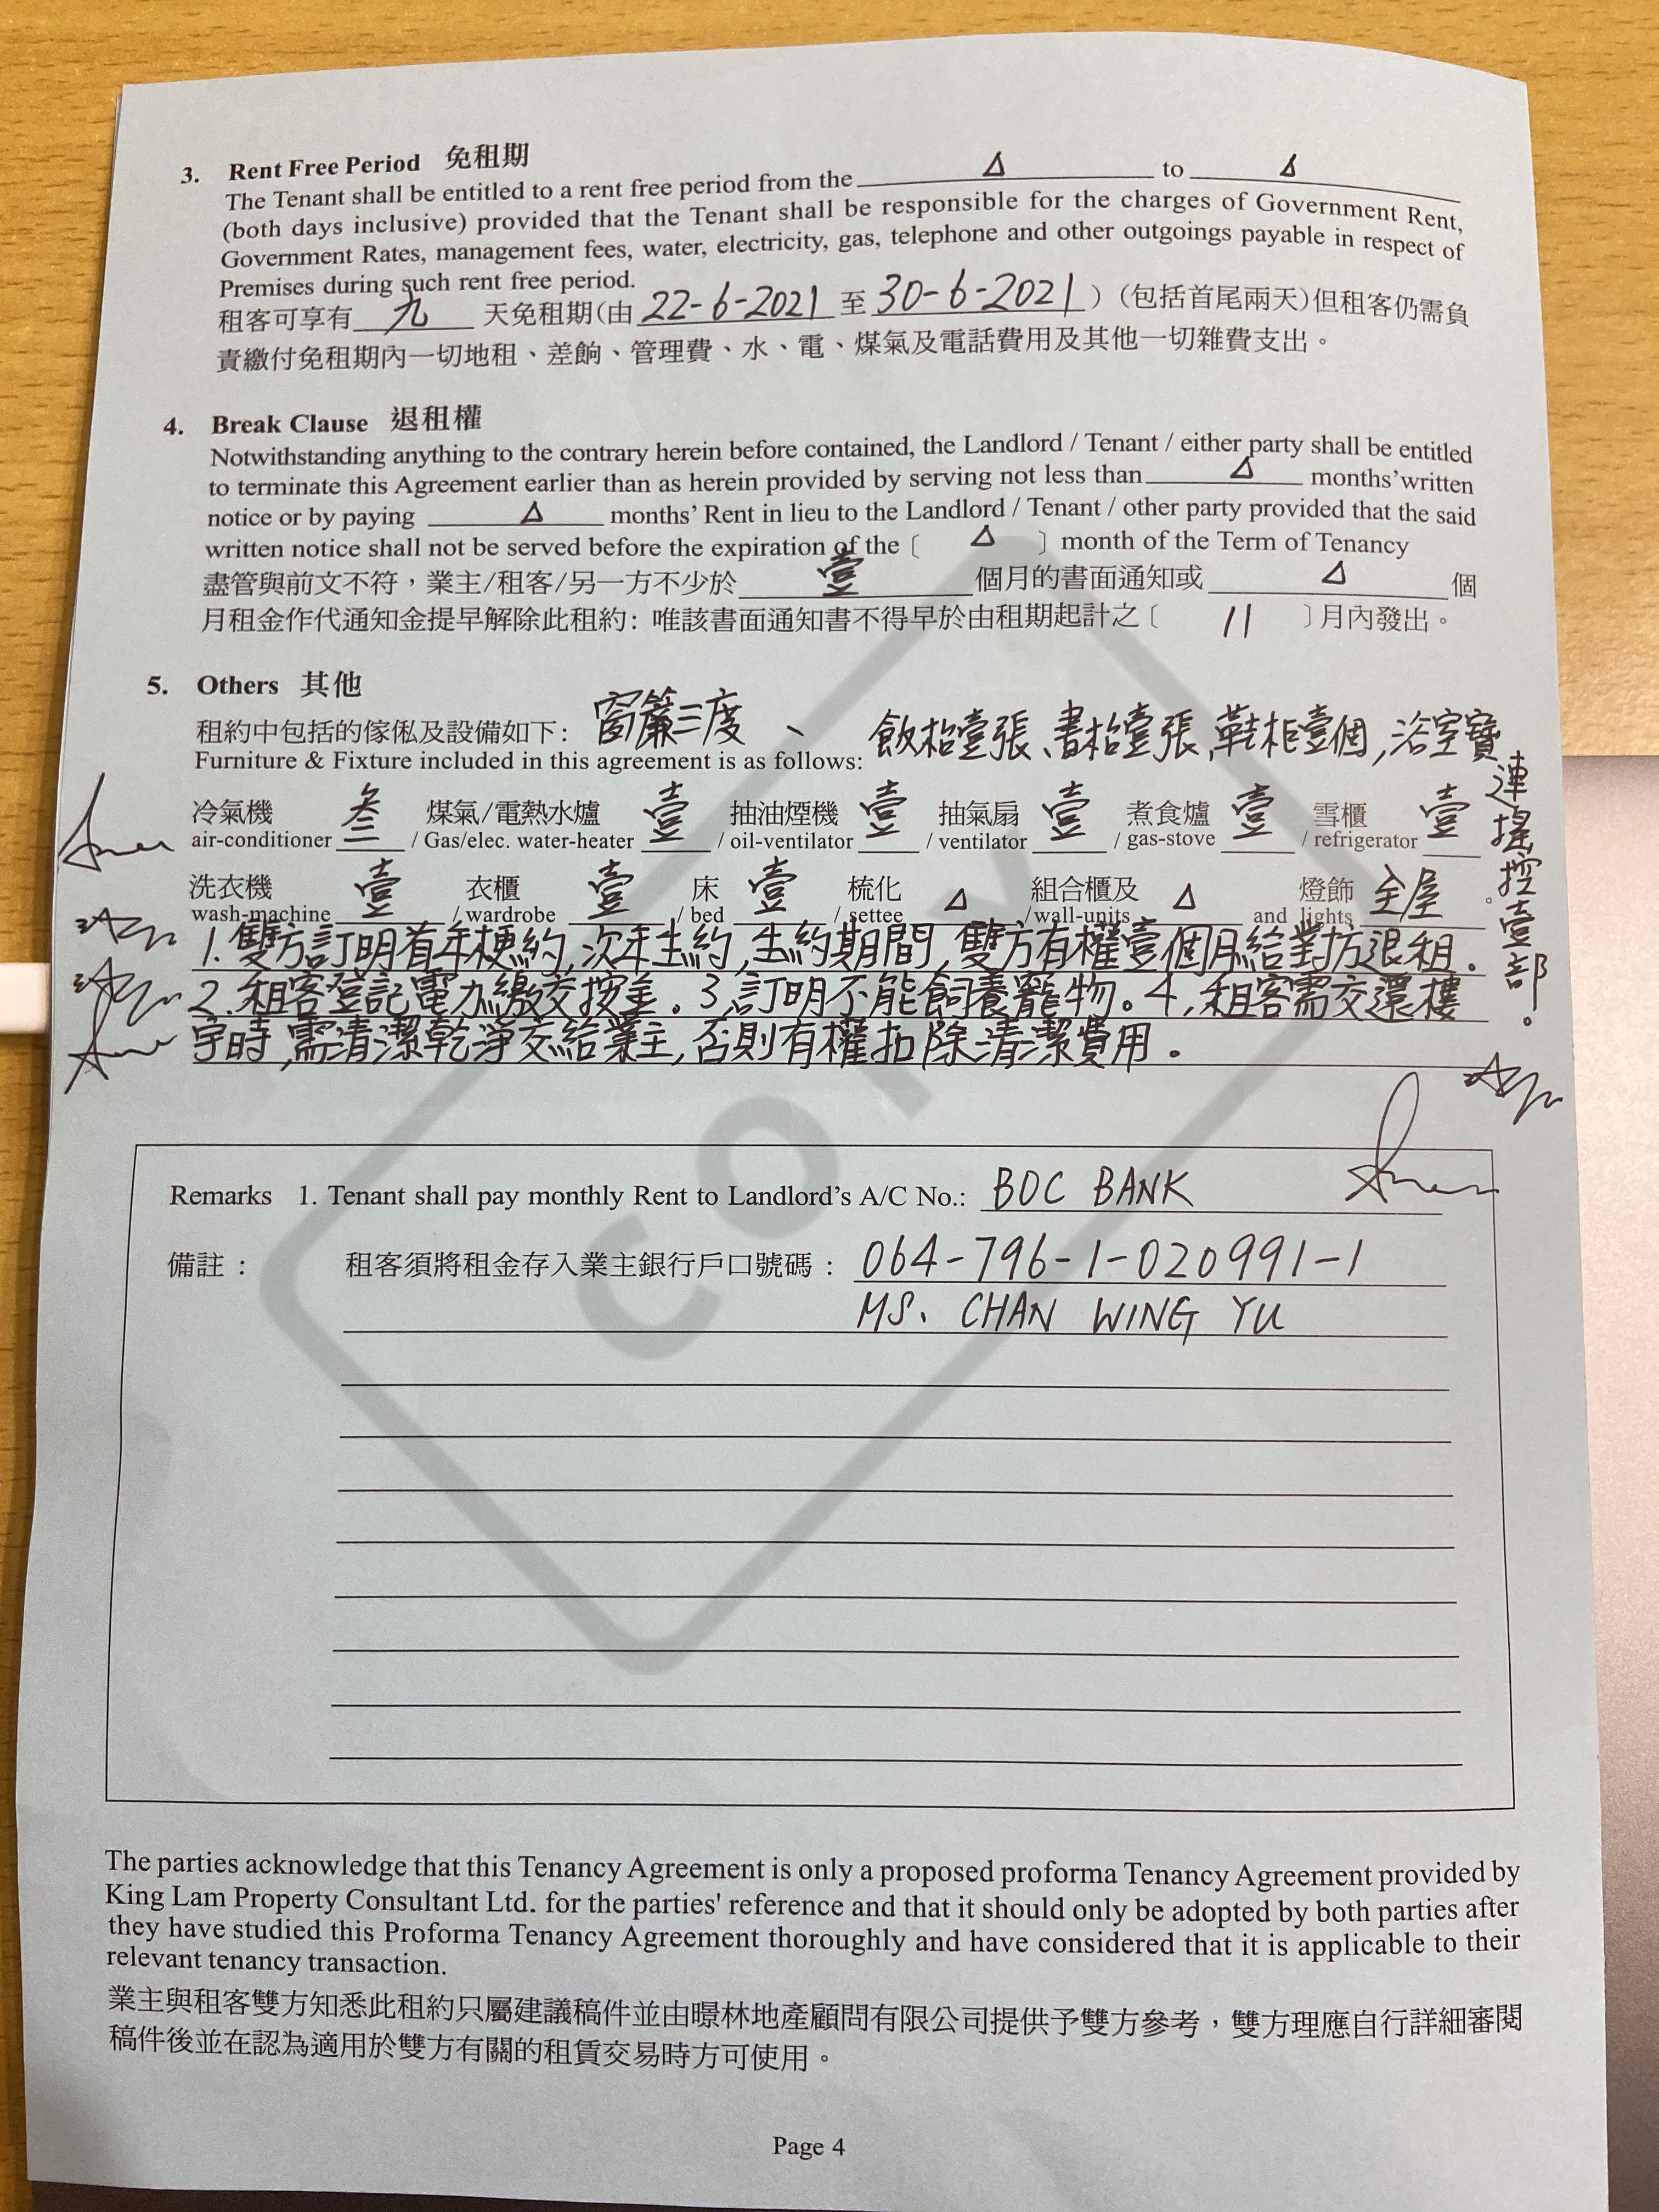 3. Rent Free Period 免租期
The Tenant shall be entitled to a rent free period from the Δ to Δ
(both days inclusive) provided that the Tenant shall be responsible for the charges of Government Rent,
Government Rates, management fees, water, electricity, gas, telephone and other outgoings payable in respect of
Premises during such rent free period.
租客可享有 九 天免租期(由 22-6-2021 至 30-6-2021 ) (包括首尾兩天)但租客仍需負
責繳付免租期內一切地租、差餉、管理費、水、電、煤氣及電話費用及其他一切雜費支出。
4. Break Clause 退租權
Notwithstanding anything to the contrary herein before contained, the Landlord / Tenant / either party shall be entitled
to terminate this Agreement earlier than as herein provided by serving not less than Δ months' written
notice or by paying Δ months' Rent in lieu to the Landlord / Tenant / other party provided that the said
written notice shall not be served before the expiration of the 〔 Δ 〕 month of the Term of Tenancy
盡管與前文不符，業主/租客/另一方不少於 壹 個月的書面通知或 Δ 個
月租金作代通知金提早解除此租約: 唯該書面通知書不得早於由租期起計之〔 11 〕月內發出。
5. Others 其他
租約中包括的傢俬及設備如下: 窗簾三度、 飲枱壹張、書枱壹張,鞋柜壹個,浴室寶
連搖控壹部。
Furniture & Fixture included in this agreement is as follows:
冷氣機 叁 煤氣/電熱水爐 壹 抽油煙機 壹 抽氣扇 壹 煮食爐 壹 雪櫃 壹
air-conditioner / Gas/elec. water-heater / oil-ventilator / ventilator / gas-stove / refrigerator
洗衣機 壹 衣櫃 壹 床 壹 梳化 Δ 組合櫃及 Δ 燈飾 全屋 。
wash-machine / wardrobe / bed / settee / wall-units and lights
1. 雙方訂明首年梗約,次年生約,生約期間,雙方有權壹個月給對方退租.
2. 租客登記電力繳交按金. 3,訂明不能飼養寵物。4,租客需交還樓
宇時,需清潔乾淨交給業主,否則有權扣除清潔費用。
Remarks 1. Tenant shall pay monthly Rent to Landlord's A/C No.: BOC BANK
備註 : 租客須將租金存入業主銀行戶口號碼 : 064-796-1-020991-1
MS. CHAN WING YU
The parties acknowledge that this Tenancy Agreement is only a proposed proforma Tenancy Agreement provided by
King Lam Property Consultant Ltd. for the parties' reference and that it should only be adopted by both parties after
they have studied this Proforma Tenancy Agreement thoroughly and have considered that it is applicable to their
relevant tenancy transaction.
業主與租客雙方知悉此租約只屬建議稿件並由暻林地產顧問有限公司提供予雙方參考，雙方理應自行詳細審閱
稿件後並在認為適用於雙方有關的租賃交易時方可使用。
Page 4
COPY